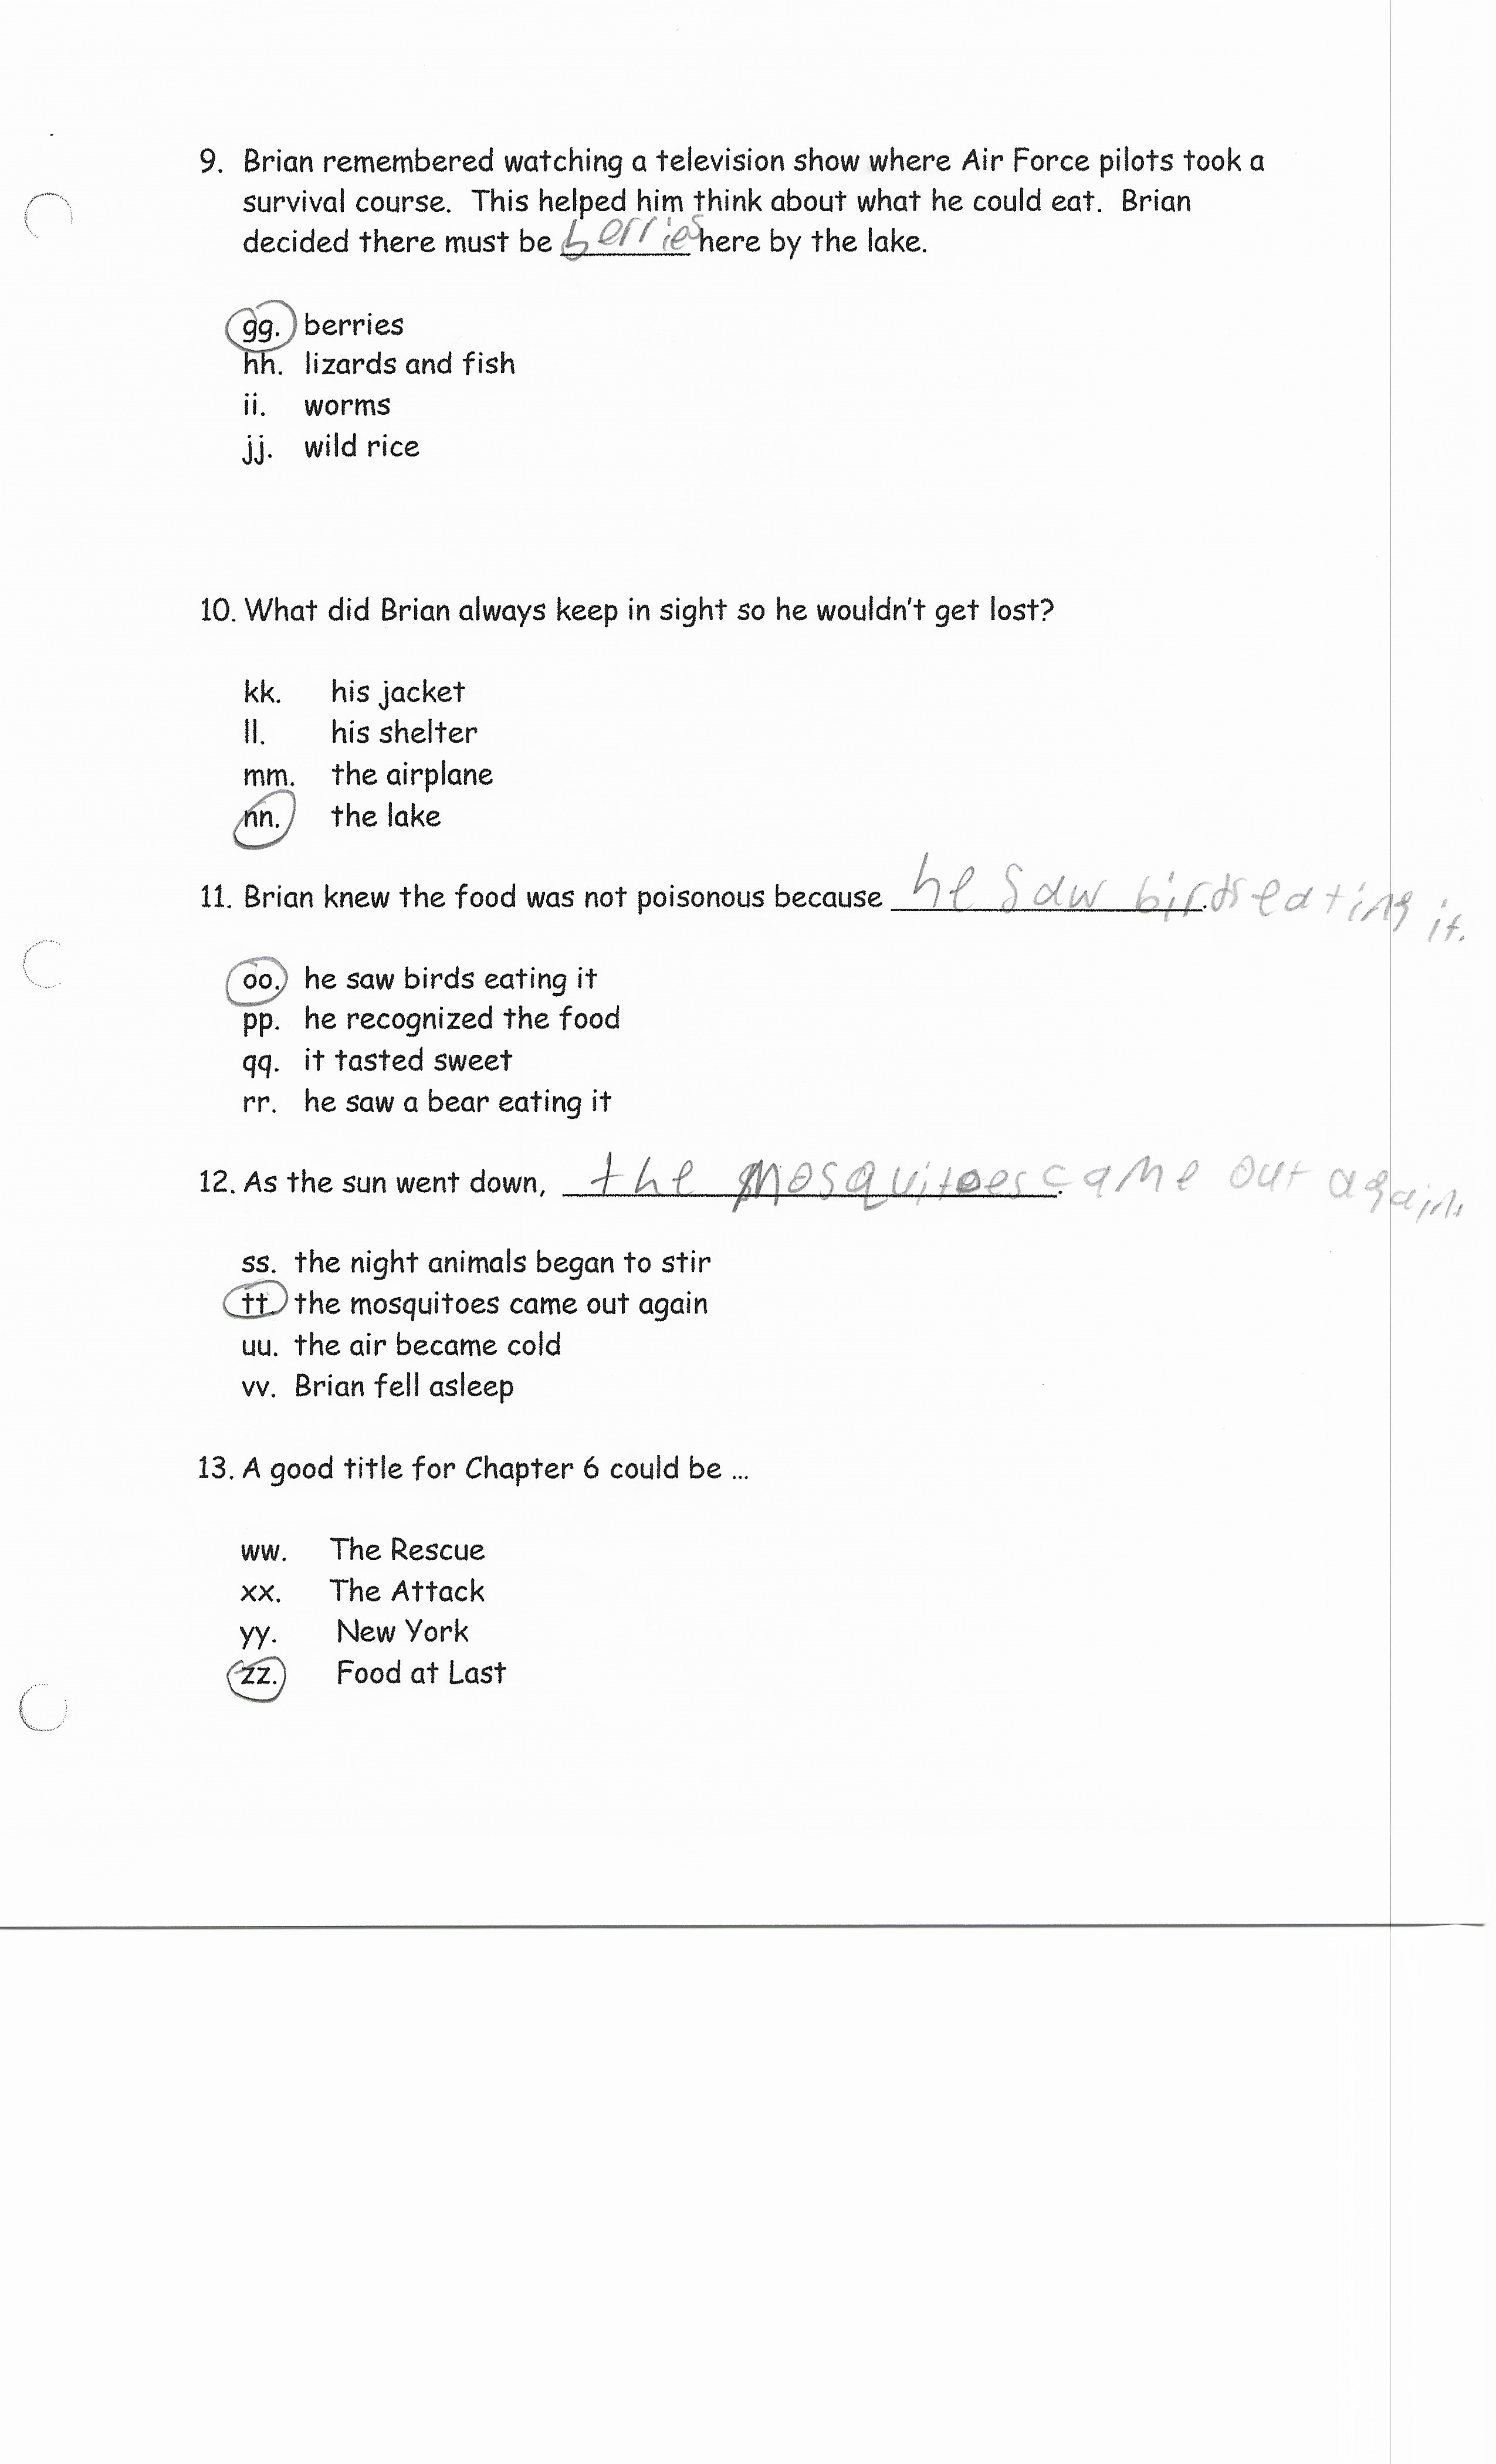 9. Brian remembered watching a television show where Air Force pilots took a
survival course. This helped him think about what he could eat. Brian
decided there must be berries here by the lake.
gg. berries
hh. lizards and fish
ii. worms
jj. wild rice
10. What did Brian always keep in sight so he wouldn't get lost?
kk. his jacket
ll. his shelter
mm. the airplane
nn. the lake
11. Brian knew the food was not poisonous because he saw birds eating it.
oo. he saw birds eating it
pp. he recognized the food
qq. it tasted sweet
rr. he saw a bear eating it
12. As the sun went down, the mosquitoes came out again.
ss. the night animals began to stir
tt. the mosquitoes came out again
uu. the air became cold
vv. Brian fell asleep
13. A good title for Chapter 6 could be ...
ww. The Rescue
xx. The Attack
yy. New York
zz. Food at Last